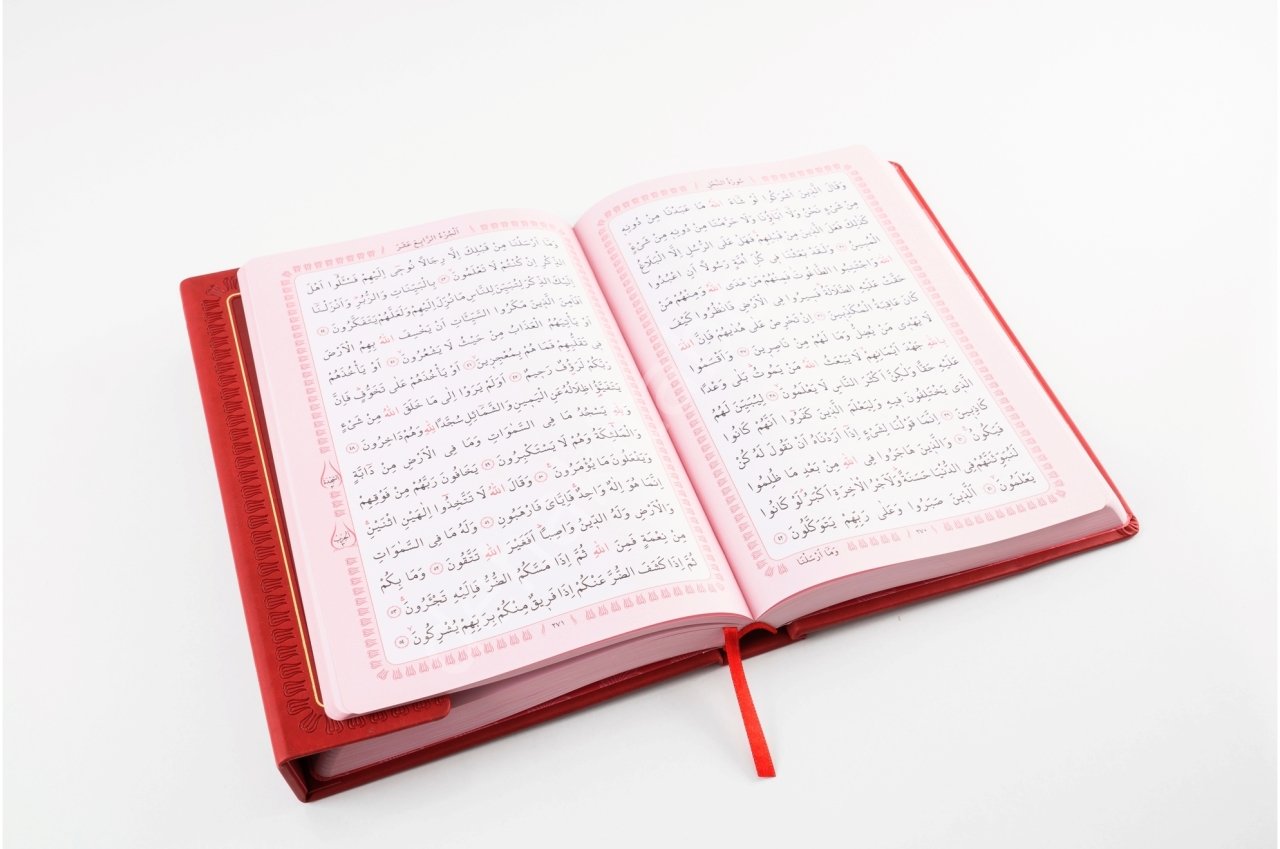 سُورَةُ النَّحْلِ
وَقَالَ الَّذِينَ اَشْرَكُوا لَوْ شَاءَ اللهُ مَا عَبَدْنَا مِنْ دُونِهِ
مِنْ شَيْءٍ نَحْنُ وَلَا اٰبَاؤُنَا وَلَا حَرَّمْنَا مِنْ دُونِهِ مِنْ شَيْءٍ
كَذٰلِكَ فَعَلَ الَّذِينَ مِنْ قَبْلِهِمْ فَهَلْ عَلَى الرُّسُلِ اِلَّا الْبَلَاغُ
الْمُبِينُ ٣٥ وَلَقَدْ بَعَثْنَا فِي كُلِّ اُمَّةٍ رَسُولًا اَنِ اعْبُدُوا
اللهَ وَاجْتَنِبُوا الطَّاغُوتَ فَمِنْهُمْ مَنْ هَدَى اللهُ وَمِنْهُمْ مَنْ
حَقَّتْ عَلَيْهِ الضَّلَالَةُ فَسِيرُوا فِي الْاَرْضِ فَانْظُرُوا كَيْفَ
كَانَ عَاقِبَةُ الْمُكَذِّبِينَ ٣٦ اِنْ تَحْرِصْ عَلٰى هُدٰيهُمْ فَاِنَّ اللهَ
لَا يَهْدِي مَنْ يُضِلُّ وَمَا لَهُمْ مِنْ نَاصِرِينَ ٣٧ وَاَقْسَمُوا
بِاللهِ جَهْدَ اَيْمَانِهِمْ لَا يَبْعَثُ اللهُ مَنْ يَمُوتُ بَلٰى وَعْدًا
عَلَيْهِ حَقًّا وَلٰكِنَّ اَكْثَرَ النَّاسِ لَا يَعْلَمُونَ ٣٨ لِيُبَيِّنَ لَهُمُ
الَّذِي يَخْتَلِفُونَ فِيهِ وَلِيَعْلَمَ الَّذِينَ كَفَرُوا اَنَّهُمْ كَانُوا
كَاذِبِينَ ٣٩ اِنَّمَا قَوْلُنَا لِشَيْءٍ اِذَا اَرَدْنَاهُ اَنْ نَقُولَ لَهُ كُنْ
فَيَكُونُ ٤٠ وَالَّذِينَ هَاجَرُوا فِي اللهِ مِنْ بَعْدِ مَا ظُلِمُوا
لَنُبَوِّئَنَّهُمْ فِي الدُّنْيَا حَسَنَةً وَلَاَجْرُ الْاٰخِرَةِ اَكْبَرُ لَوْ كَانُوا
يَعْلَمُونَ ٤١ اَلَّذِينَ صَبَرُوا وَعَلٰى رَبِّهِمْ يَتَوَكَّلُونَ ٤٢
٢٧٠
وَمَا اَرْسَلْنَا
اَلْجُزْءُ الرَّابِعَ عَشَرَ
وَمَا اَرْسَلْنَا مِنْ قَبْلِكَ اِلَّا رِجَالًا نُوحِي اِلَيْهِمْ فَسْـَٔلُوا اَهْلَ
الذِّكْرِ اِنْ كُنْتُمْ لَا تَعْلَمُونَ ٤٣ بِالْبَيِّنَاتِ وَالزُّبُرِ وَاَنْزَلْنَا
اِلَيْكَ الذِّكْرَ لِتُبَيِّنَ لِلنَّاسِ مَا نُزِّلَ اِلَيْهِمْ وَلَعَلَّهُمْ يَتَفَكَّرُونَ ٤٤
اَفَاَمِنَ الَّذِينَ مَكَرُوا السَّيِّـَٔاتِ اَنْ يَخْسِفَ اللهُ بِهِمُ الْاَرْضَ
اَوْ يَأْتِيَهُمُ الْعَذَابُ مِنْ حَيْثُ لَا يَشْعُرُونَ ٤٥ اَوْ يَأْخُذَهُمْ
فِي تَقَلُّبِهِمْ فَمَا هُمْ بِمُعْجِزِينَ ٤٦ اَوْ يَأْخُذَهُمْ عَلٰى تَخَوُّفٍ فَاِنَّ
رَبَّكُمْ لَرَؤُفٌ رَحِيمٌ ٤٧ اَوَلَمْ يَرَوْا اِلٰى مَا خَلَقَ اللهُ مِنْ شَيْءٍ
يَتَفَيَّؤُا ظِلَالُهُ عَنِ الْيَمِينِ وَالشَّمَائِلِ سُجَّدًا لِلّٰهِ وَهُمْ دَاخِرُونَ ٤٨
وَلِلّٰهِ يَسْجُدُ مَا فِي السَّمٰوَاتِ وَمَا فِي الْاَرْضِ مِنْ دَابَّةٍ
وَالْمَلٰئِكَةُ وَهُمْ لَا يَسْتَكْبِرُونَ ٤٩ يَخَافُونَ رَبَّهُمْ مِنْ فَوْقِهِمْ
وَيَفْعَلُونَ مَا يُؤْمَرُونَ ٥٠ وَقَالَ اللهُ لَا تَتَّخِذُوا اِلٰهَيْنِ اثْنَيْنِ
اِنَّمَا هُوَ اِلٰهٌ وَاحِدٌ فَاِيَّايَ فَارْهَبُونِ ٥١ وَلَهُ مَا فِي السَّمٰوَاتِ
وَالْاَرْضِ وَلَهُ الدِّينُ وَاصِبًا اَفَغَيْرَ اللهِ تَتَّقُونَ ٥٢ وَمَا بِكُمْ
مِنْ نِعْمَةٍ فَمِنَ اللهِ ثُمَّ اِذَا مَسَّكُمُ الضُّرُّ فَاِلَيْهِ تَجْـَٔرُونَ ٥٣
ثُمَّ اِذَا كَشَفَ الضُّرَّ عَنْكُمْ اِذَا فَرِيقٌ مِنْكُمْ بِرَبِّهِمْ يُشْرِكُونَ ٥٤
٢٧١